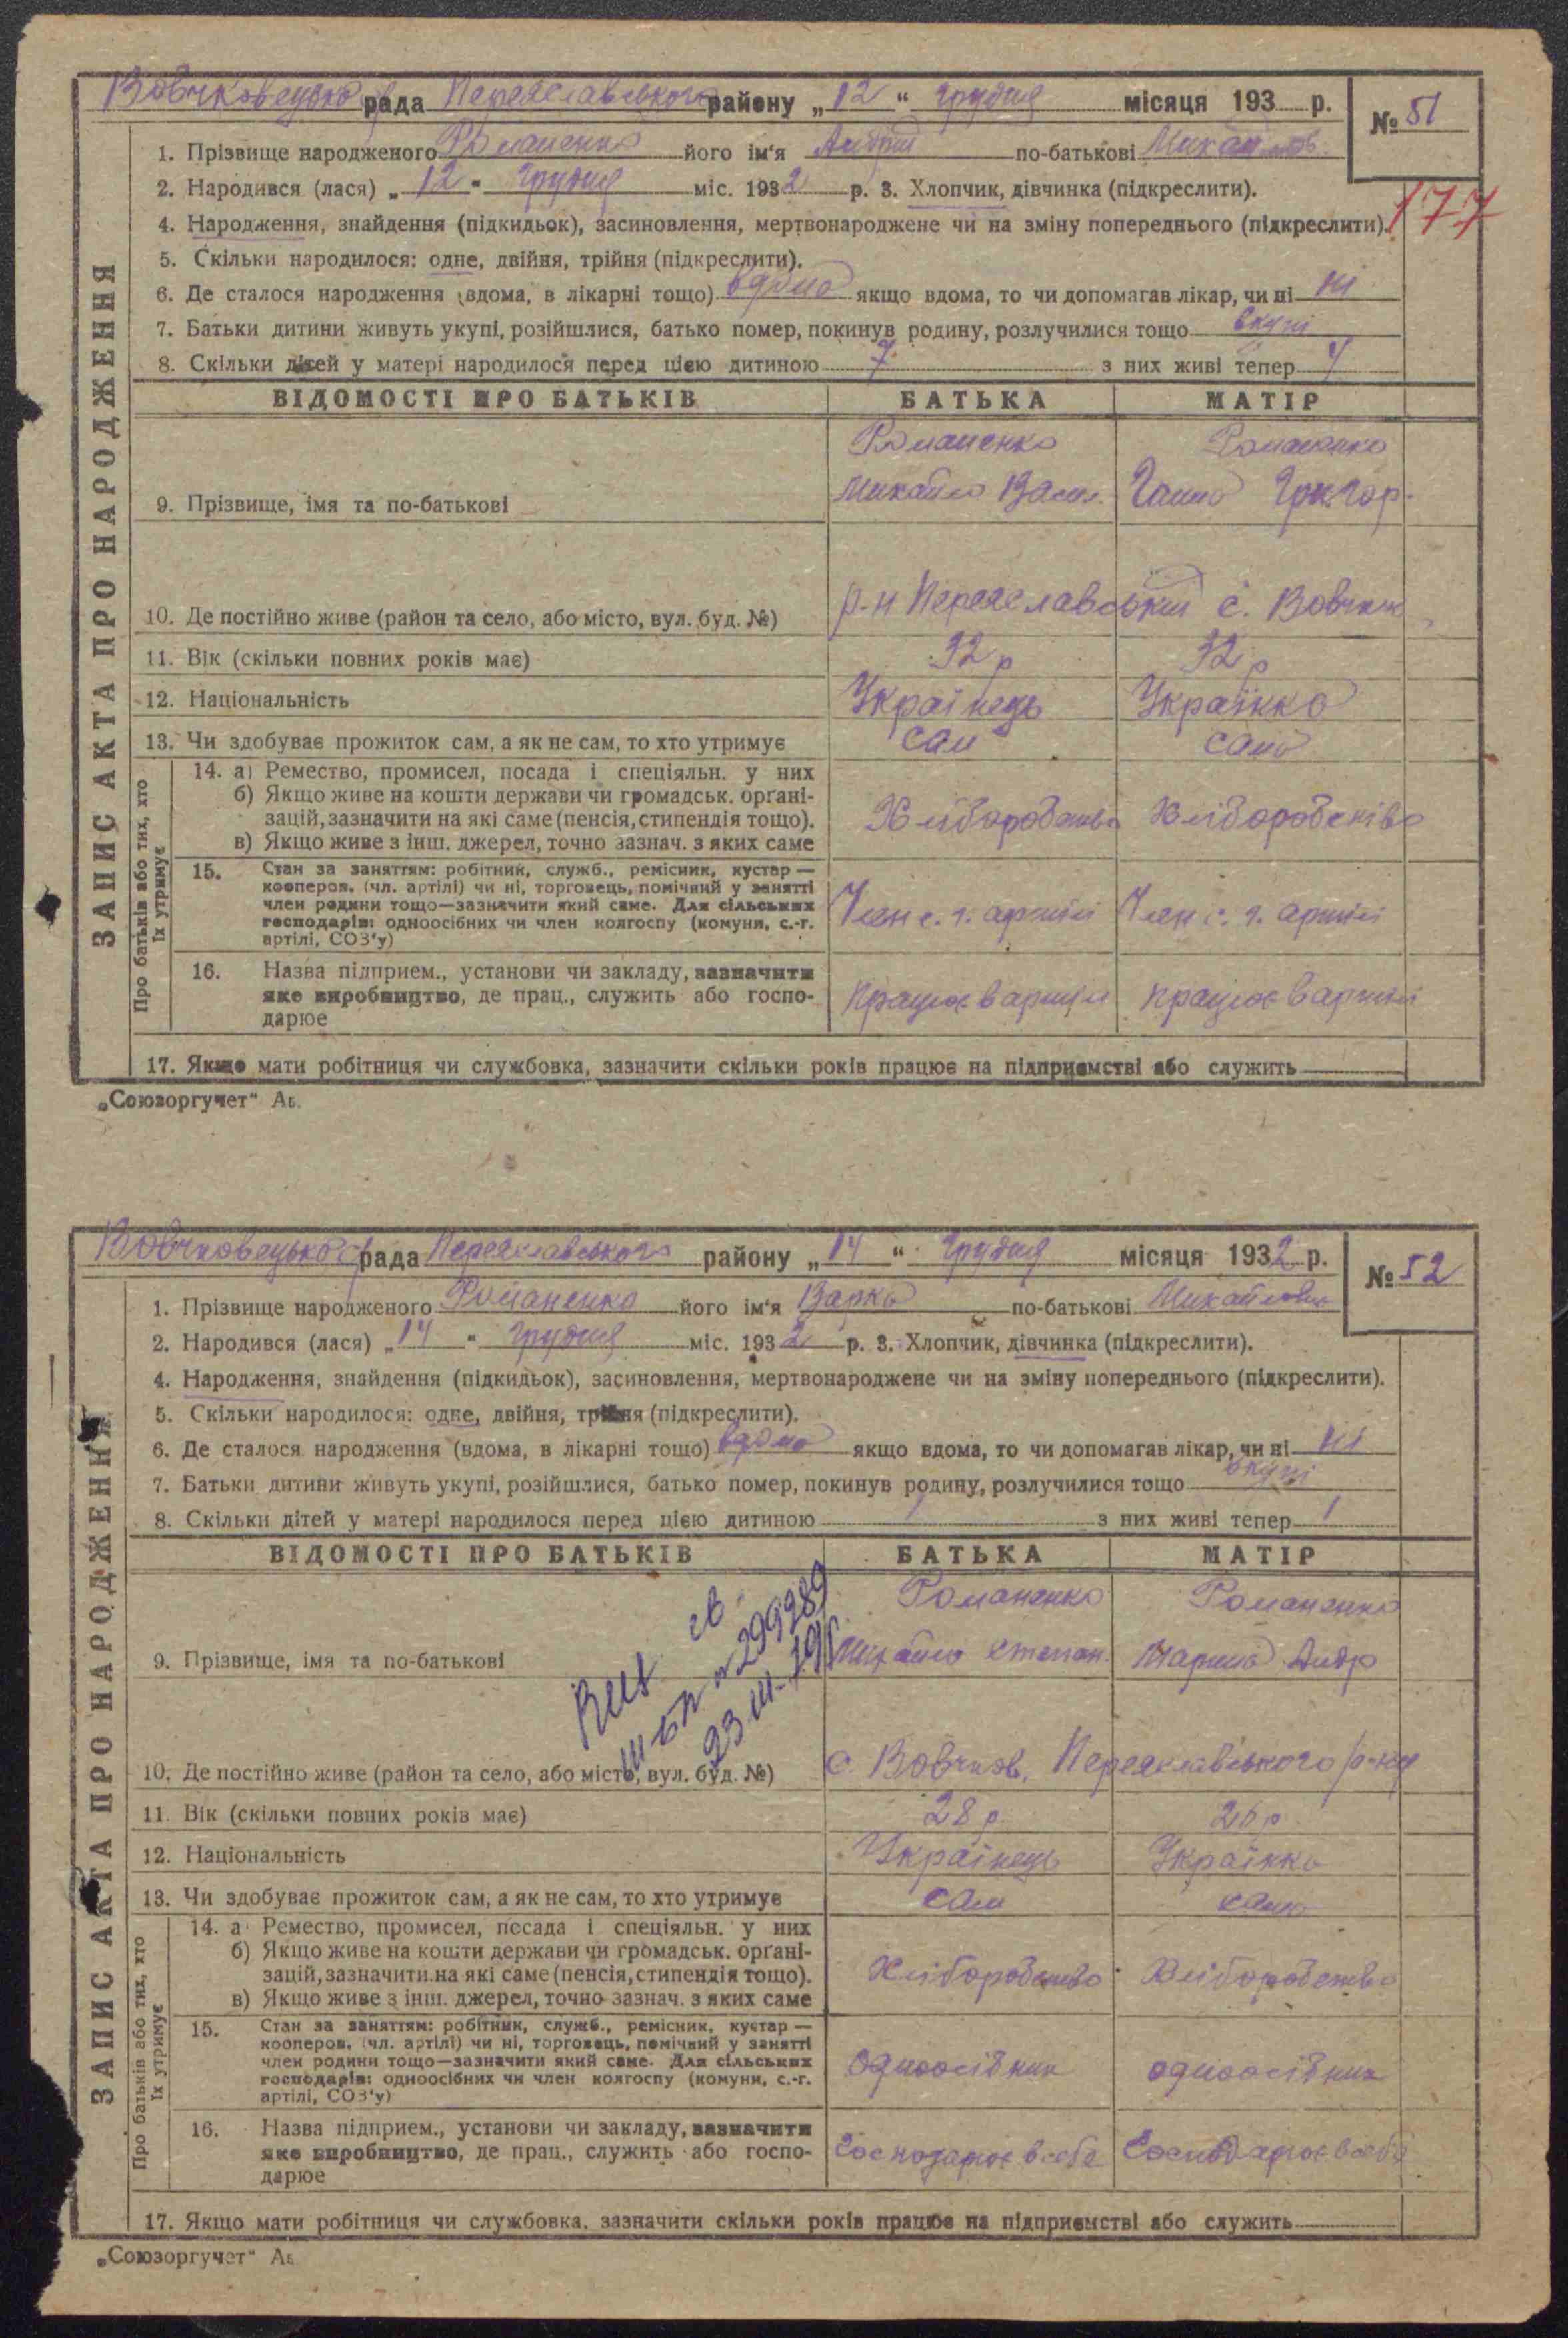 Вовчковецька рада Переяславського району „12“ грудня місяця 193 р.
№ 51
1. Прізвище народженого Романенко його ім'я Андрій по-батькові Михайлов.
2. Народився (лася) „12“ грудня міс. 1932 р. 3. Хлопчик, дівчинка (підкреслити).
177
4. Народження, знайдення (підкидьок), засиновлення, мертвонароджене чи на зміну попереднього (підкреслити).
5. Скільки народилося: одне, двійня, трійня (підкреслити).
6. Де сталося народження (вдома, в лікарні тощо) вдома якщо вдома, то чи допомагав лікар, чи ні ні
7. Батьки дитини живуть укупі, розійшлися, батько помер, покинув родину, розлучилися тощо вкупі
8. Скільки дітей у матері народилося перед цією дитиною 7 з них живі тепер
ЗАПИС АКТА ПРО НАРОДЖЕННЯ
ВІДОМОСТІ ПРО БАТЬКІВ БАТЬКА МАТІР
Романенко Романенко
9. Прізвище, імя та по-батькові Михайло Васил. Ганна Григор.
10. Де постійно живе (район та село, або місто, вул. буд. №) р-н Переяславський с. Вовчков
11. Вік (скільки повних років має) 32 р 32 р
12. Національність Українець Українка
13. Чи здобуває прожиток сам, а як не сам, то хто утримує сам сама
Про батьків або тих, хто їх утримує
14. а) Ремество, промисел, посада і спеціяльн. у них
б) Якщо живе на кошти держави чи громадськ. орґані-
зацій, зазначити на які саме (пенсія, стипендія тощо). Хліборобство Хліборобство
в) Якщо живе з інш. джерел, точно зазнач. з яких саме
15. Стан за заняттям: робітник, служб., ремісник, кустар —
кооперов. (чл. артілі) чи ні, торговець, помічний у занятті
член родини тощо—зазначити який саме. Для сільських
господарів: одноосібних чи член колгоспу (комуни, с.-г. Член с. г. артілі Член с. г. артілі
артілі, СОЗ'у)
16. Назва підприєм., установи чи закладу, зазначити
яке виробництво, де прац., служить або госпо- працює в артілі працює в артілі
дарює
17. Якщо мати робітниця чи службовка, зазначити скільки років працює на підприємстві або служить
„Союзоргучет“ Аб.
Вовчковецька рада Переяславського району „14“ грудня місяця 1932 р.
№ 52
1. Прізвище народженого Романенко його ім'я Варка по-батькові Михайловн
2. Народився (лася) „14“ грудня міс. 1932 р. 3. Хлопчик, дівчинка (підкреслити).
4. Народження, знайдення (підкидьок), засиновлення, мертвонароджене чи на зміну попереднього (підкреслити).
5. Скільки народилося: одне, двійня, трійня (підкреслити).
6. Де сталося народження (вдома, в лікарні тощо) вдома якщо вдома, то чи допомагав лікар, чи ні ні
7. Батьки дитини живуть укупі, розійшлися, батько помер, покинув родину, розлучилися тощо вкупі
8. Скільки дітей у матері народилося перед цією дитиною 1 з них живі тепер 1
ЗАПИС АКТА ПРО НАРОДЖЕННЯ
ВІДОМОСТІ ПРО БАТЬКІВ БАТЬКА МАТІР
Романенко Романенко
9. Прізвище, імя та по-батькові Михайло Степан. Марина Андр
св
299289
23 III
10. Де постійно живе (район та село, або місто, вул. буд. №) с. Вовчков, Переяславського р-ну
11. Вік (скільки повних років має) 28 р. 26 р
12. Національність Українець Українка
13. Чи здобуває прожиток сам, а як не сам, то хто утримує сам сама
Про батьків або тих, хто їх утримує
14. а Ремество, промисел, посада і спеціяльн. у них
б) Якщо живе на кошти держави чи громадськ. орґані-
зацій, зазначити на які саме (пенсія, стипендія тощо). Хліборобство Хліборобство
в) Якщо живе з інш. джерел, точно зазнач. з яких саме
15. Стан за заняттям: робітник, служб., ремісник, кустар —
кооперов. (чл. артілі) чи ні, торговець, помічний у занятті
член родини тощо—зазначити який саме. Для сільських
господарів: одноосібних чи член колгоспу (комуни, с.-г. одноосібник одноосібник
артілі, СОЗ'у)
16. Назва підприєм., установи чи закладу, зазначити
яке виробництво, де прац., служить або госпо- Господарює в себе Господарює в себе
дарює
17. Якщо мати робітниця чи службовка, зазначити скільки років працює на підприємстві або служить
„Союзоргучет“ Аб